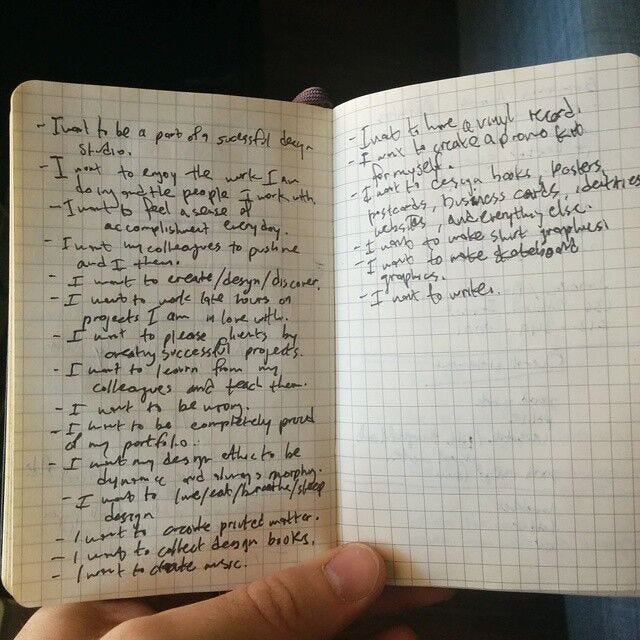 - I want to be a part of a sucessful design
studio.
- I want to enjoy the work I am
doing and the people I work with.
- I want to feel a sense of
accomplishment everyday.
- I want my colleagues to push me
and I them.
- I want to create/design/discover.
- I want to work late hours on
projects I am in love with.
- I want to please clients by
creating successful projects.
- I want to learn from my
colleagues and teach them.
- I want to be wrong.
- I want to be completely proud
of my portfolio.
- I want my design ethic to be
dynamic and always morphing.
- I want to live/eat/breathe/sleep
design
- I want to create printed matter.
- I want to collect design books.
- I want to create music.
- I want to have a vinyl record.
- I want to create a promo
for myself.
- I want to design books, posters,
postcards, business cards, identities
websites, and everything else.
- I want to make shirt graphics.
- I want to make skateboard
graphics.
- I want to write.